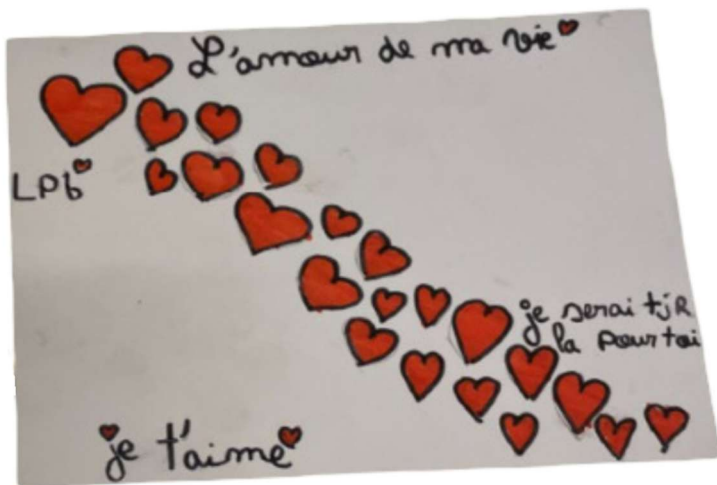 L'amour de ma vie
LPb
je serai tjR
la pour toi
je t'aime